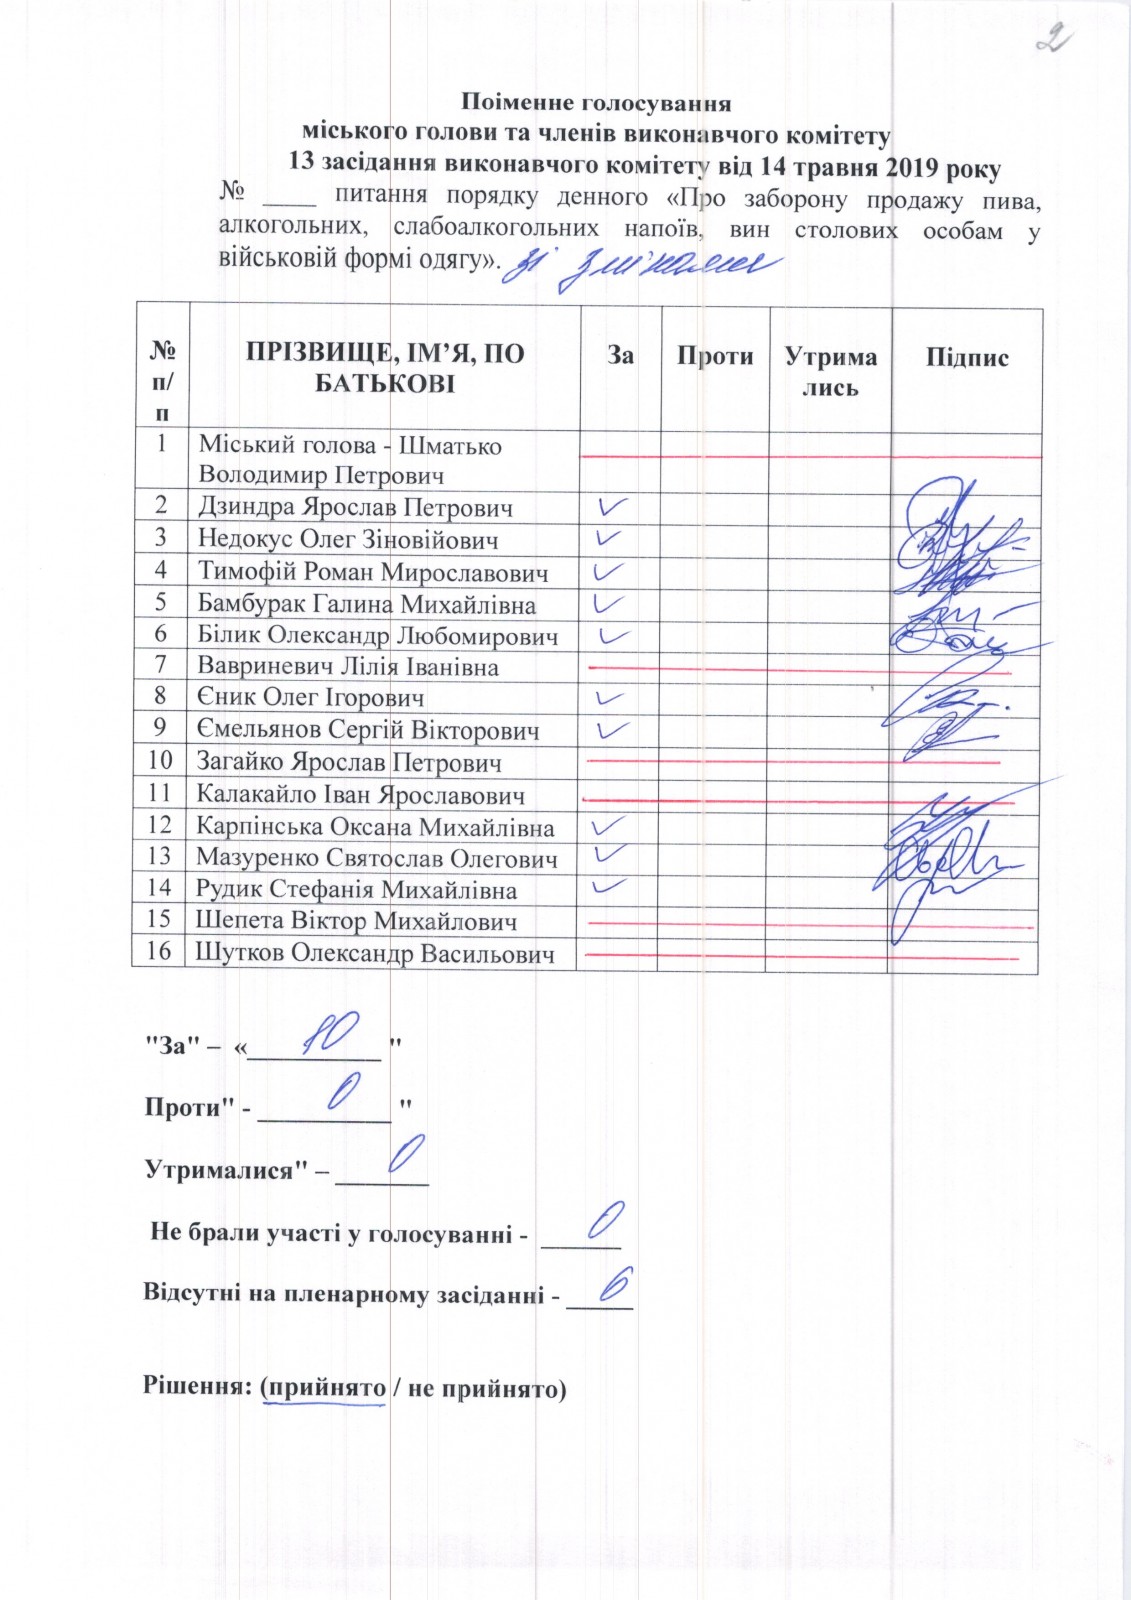 2
Поіменне голосування
міського голови та членів виконавчого комітету
13 засідання виконавчого комітету від 14 травня 2019 року
№ ____ питання порядку денного «Про заборону продажу пива,
алкогольних, слабоалкогольних напоїв, вин столових особам у
військовій формі одягу». зі змінами
№ п/п ПРІЗВИЩЕ, ІМ’Я, ПО БАТЬКОВІ За Проти Утрима лись Підпис
1 Міський голова - Шматько
Володимир Петрович
2 Дзиндра Ярослав Петрович ✓
3 Недокус Олег Зіновійович ✓
4 Тимофій Роман Мирославович ✓
5 Бамбурак Галина Михайлівна ✓
6 Білик Олександр Любомирович ✓
7 Вавриневич Лілія Іванівна
8 Єник Олег Ігорович ✓
9 Ємельянов Сергій Вікторович ✓
10 Загайко Ярослав Петрович
11 Калакайло Іван Ярославович
12 Карпінська Оксана Михайлівна ✓
13 Мазуренко Святослав Олегович ✓
14 Рудик Стефанія Михайлівна ✓
15 Шепета Віктор Михайлович
16 Шутков Олександр Васильович
"За" – « 10 "
Проти" - 0 "
Утрималися" – 0
Не брали участі у голосуванні - 0
Відсутні на пленарному засіданні - 6
Рішення: (прийнято / не прийнято)